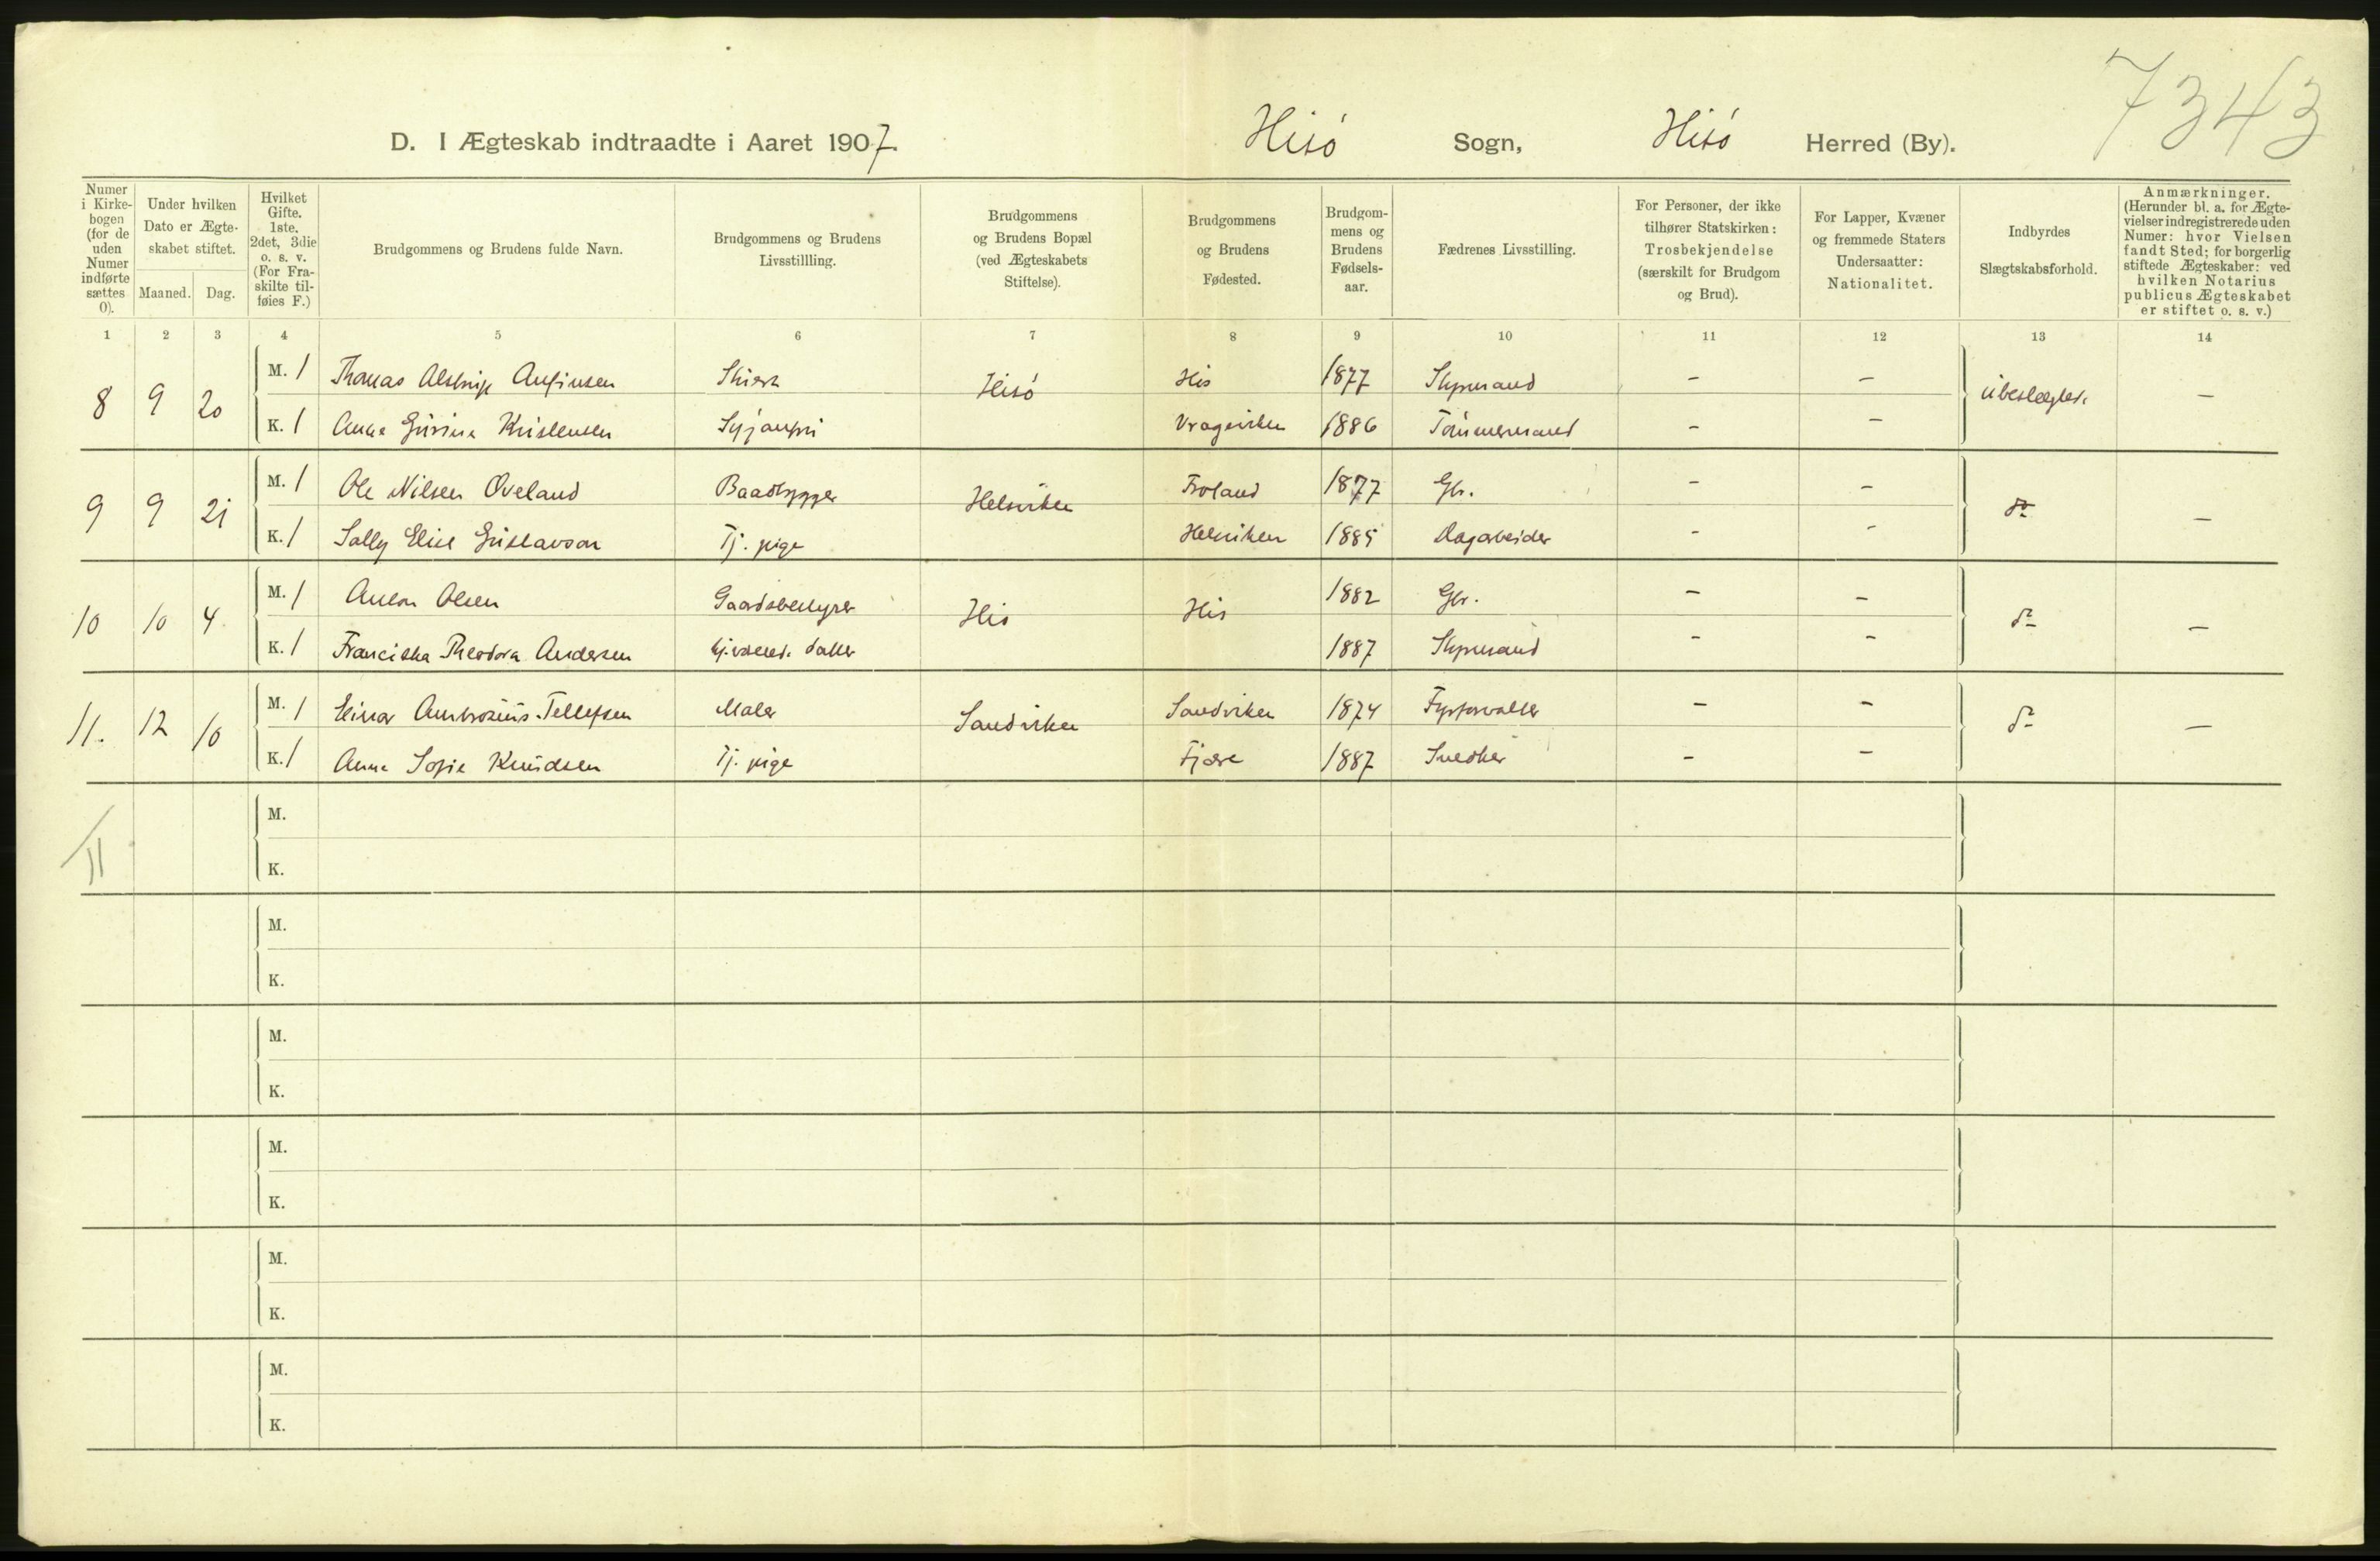 7343
D. I Ægteskab indtraadte i Aaret 1907. Hisö Sogn, Hisö Herred (By).
Numer i Kirkebogen (for de uden Numer indførte sættes 0).
Under hvilken Dato er Ægteskabet stiftet.
Maaned. Dag.
Hvilket Gifte. 1ste. 2det, 3die o. s. v. (For Fraskilte tilføies F.)
Brudgommens og Brudens fulde Navn.
Brudgommens og Brudens Livsstillling.
Brudgommens og Brudens Bopæl (ved Ægteskabets Stiftelse).
Brudgommens og Brudens Fødested.
Brudgommens og Brudens Fødselsaar.
Fædrenes Livsstilling.
For Personer, der ikke tilhører Statskirken: Trosbekjendelse (særskilt for Brudgom og Brud).
For Lapper, Kvæner og fremmede Staters Undersaatter: Nationalitet.
Indbyrdes Slægtskabsforhold.
Anmærkninger. (Herunder bl. a. for Ægtevielser indregistrerede uden Numer: hvor Vielsen fandt Sted; for borgerlig stiftede Ægteskaber: ved hvilken Notarius publicus Ægteskabet er stiftet o. s. v.)
1 2 3 4 5 6 7 8 9 10 11 12 13 14
8 9 20 M. 1 Thomas Alstrup Anfinsen Hisö His 1877 Skipmand – – ubeslegtet. –
K. 1 Anna Gurine Kristensen Syjomfru Vragviken 1886 Tömmermand – –
9 9 21 M. 1 Ole Nilsen Oveland Baadbygger Helsviken Froland 1877 Gbr. – – do –
K. 1 Sally Elise Gustavson Tj. pige Helsviken 1885 Dagarbeider – –
10 10 4 M. 1 Anton Olsen Gaardsbestyrer His His 1882 Gbr. – – do –
K. 1 Franciska Theodora Andersen hj. værd. datter 1887 Skipmand – –
11. 12 10 M. 1 Einar Ambrosius Tellefsen Maler Sandviken Sandviken 1874 Fyrforvalter – – do –
K. 1 Anna Sofie Knudsen Tj. pige Fjære 1887 Snedker – –
M.
11
K.
M.
K.
M.
K.
M.
K.
M.
K.
M.
K.